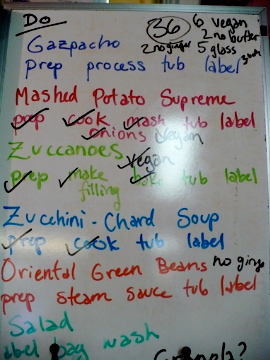 Do
36
6 vegan
2 no butter
2 no ginger
5 glass
Gazpacho
prep process tub label
Mashed Potato Supreme
prep cook mash tub label
onions vegan
Zuccanoes
vegan
prep make bake tub label
filling
Zucchini-Chard Soup
prep cook tub label
Oriental Green Beans no ging
prep steam sauce tub label
Salad
abel bag wash